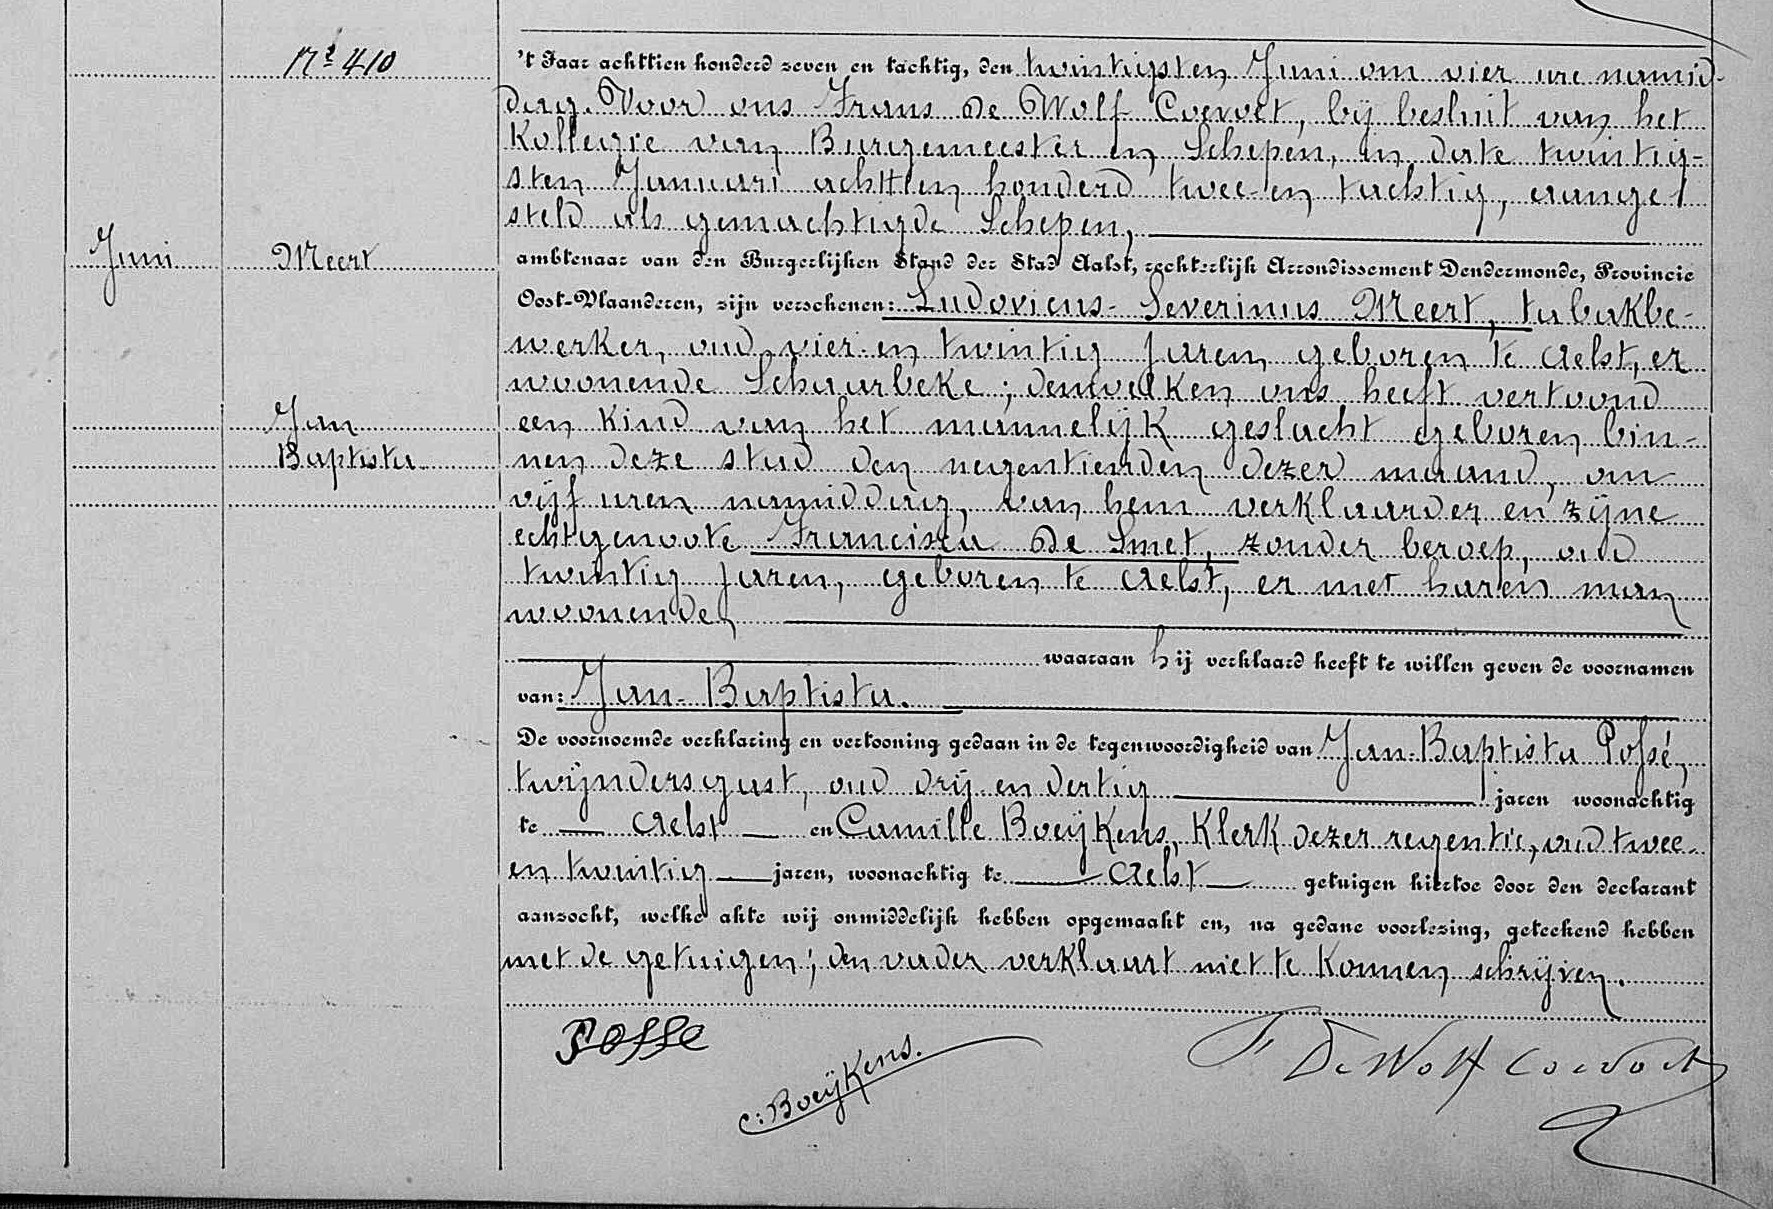 Nr 410
't Jaar achttien honderd zeven en tachtig, den twintigsten Juni om vier ure namid-
dag. Voor ons Frans De Wolf-Coevoet, bij besluit van het
Kollegie van Burgemeester en Schepen, in date twintig-
sten Januari achttien honderd twee-en tachtig, aange-
steld als gemachtigde Schepen,
Juni
Meert
ambtenaar van den Burgerlijken Stand der Stad Aalst, rechterlijk Arrondissement Dendermonde, Provincie
Oost-Vlaanderen, zijn verschenen: Ludovicus-Severinus Meert, tabakbe-
werker, oud vier-en twintig jaren, geboren te Aelst, er
woonende Schaarbeke; denwelken ons heeft vertoond
Jan
Baptista
een kind van het mannelijk geslacht geboren bin-
nen deze stad den negentienden dezer maand, om
vijf uren namiddag, van hem verklaarder en zijne
echtgenoote Francisca De Smet, zonder beroep, oud
twintig jaren, geboren te Aelst, er met haren man
woonende,
waaraan hij verklaard heeft te willen geven de voornamen
van: Jan-Baptista.
De voornoemde verklaring en vertooning gedaan in de tegenwoordigheid van Jan-Baptista Possé,
twijndersgast, oud drij-en dertig jaren woonachtig
te Aelst en Camille Boeijkens, Klerk dezer regentie, oud twee-
en twintig jaren, woonachtig te Aelst getuigen hiertoe door den declarant
aanzocht, welke akte wij onmiddelijk hebben opgemaakt en, na gedane voorlezing, geteekend hebben
met de getuigen; den vader verklaart niet te konnen schrijven.
Posse
C. Boeijkens.
F. De Wolf Coevoet